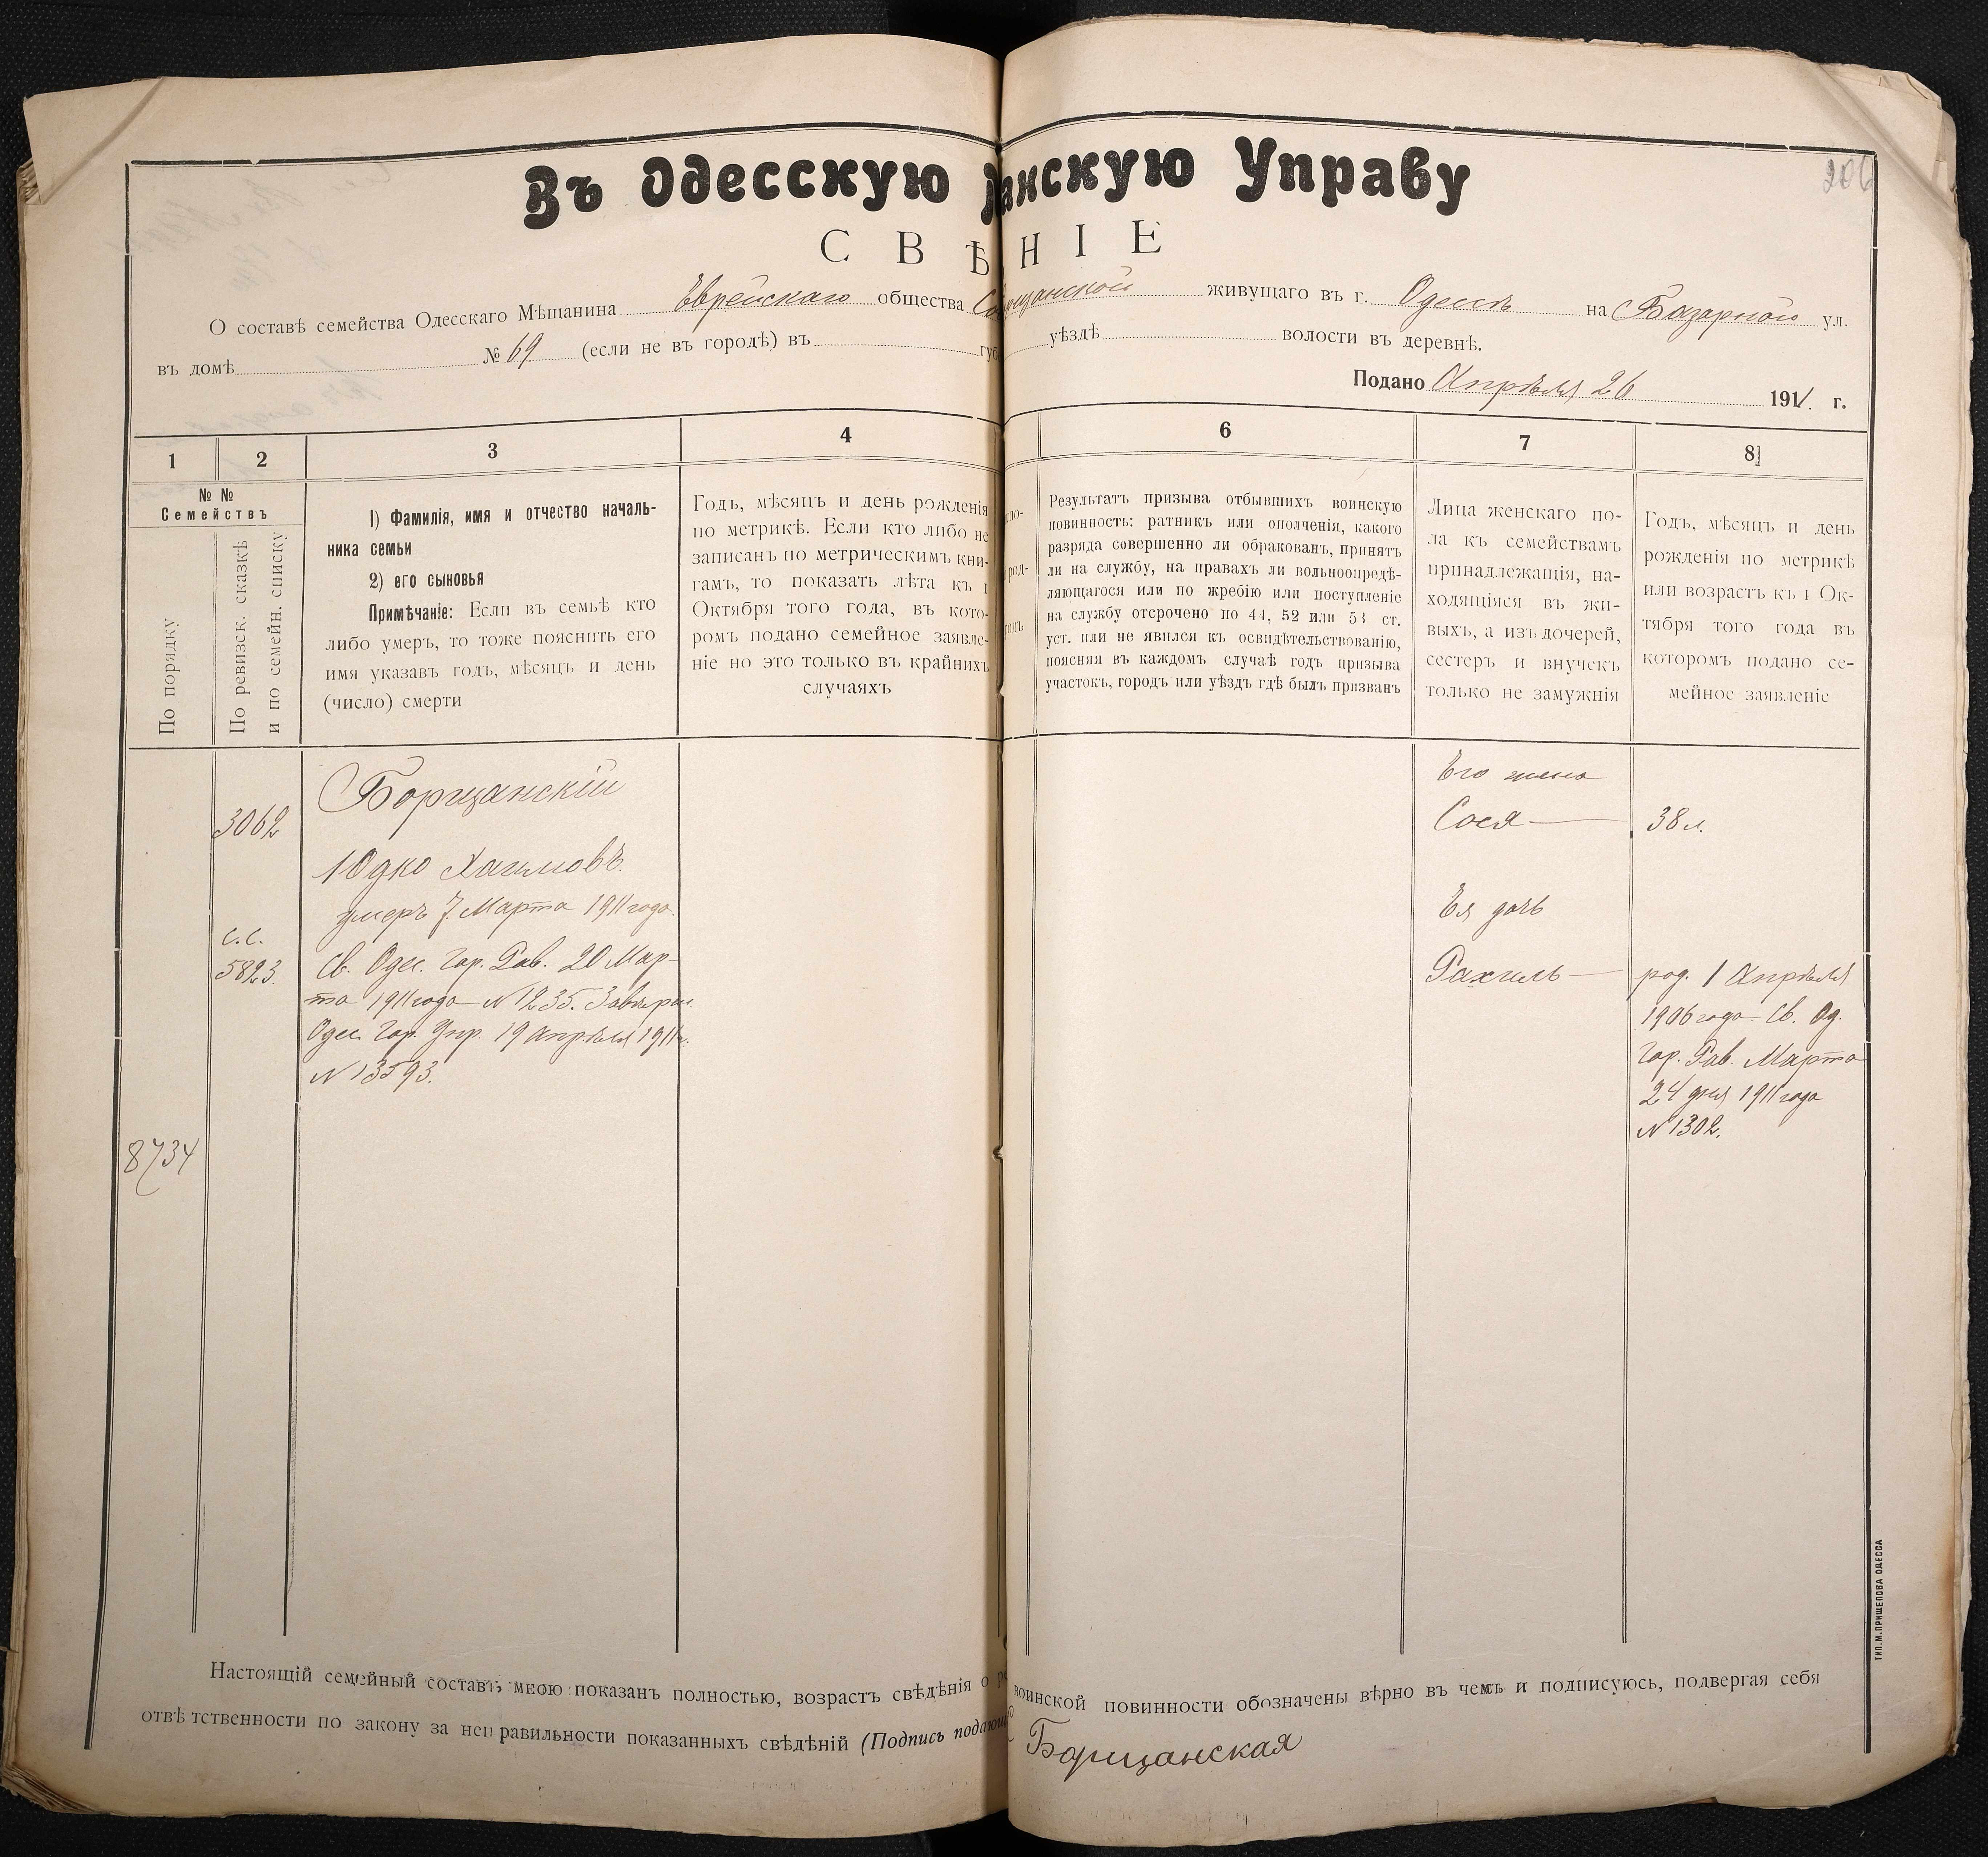 206
Въ Одесскую анскую Управу
СВѢ НІЕ
О составѣ семейства Одесскаго Мѣщанина Еврейскаго общества Со рщанской живущаго въ г. Одессѣ на Базарной ул.
въ домѣ № 69 (если не въ городѣ) въ губ уѣздѣ волости въ деревнѣ.
Подано Апрѣля 26 1911 г.
1 2 3 4 6 7 8
№ №
Семействъ
По порядку
По ревизск. сказкѣ
и по семейн. списку
1) Фамилія, имя и отчество началь-
ника семьи
2) его сыновья
Примѣчаніе: Если въ семьѣ кто
либо умеръ, то тоже пояснить его
имя указавъ годъ, мѣсяцъ и день
(число) смерти
Годъ, мѣсяцъ и день рожденія
по метрикѣ. Если кто либо не
записанъ по метрическимъ кни-
гамъ, то показать лѣта къ 1
Октября того года, въ кото-
ромъ подано семейное заявле-
ніе но это только въ крайнихъ
случаяхъ
спо-
род-
родъ
Результатъ призыва отбывшихъ воинскую
повинность: ратникъ или ополченія, какого
разряда совершенно ли обракованъ, принятъ
ли на службу, на правахъ ли вольноопредѣ-
ляющагося или по жребію или поступленіе
на службу отсрочено по 44, 52 или 53 ст.
уст. или не явился къ освидѣтельствованію,
поясняя въ каждомъ случаѣ годъ призыва
участокъ, городъ или уѣздъ гдѣ былъ призванъ
Лица женскаго по-
ла къ семействамъ
принадлежащія, на-
ходящіяся въ жи-
выхъ, а изъ дочерей,
сестеръ и внучекъ
только не замужнія
Годъ, мѣсяцъ и день
рожденія по метрикѣ
или возрастъ къ 1 Ок-
тября того года въ
которомъ подано се-
мейное заявленіе
8734
3062
с.с.
5823.
Борщанскій
Юдко Хаимовъ
умеръ 7 Марта 1911 года.
Св. Одес. Гор. Рав. 20 Мар-
та 1911 года № 1235. Завѣрен.
Одес. Гор. Упр. 19 Апрѣля 1911 г.
№ 13593.
Его жена
Сося
38 л.
Ея дочь
Рахиль
род. 1 Апрѣля
1906 года Св. Од.
Гор. Рав. Марта
24 дня 1911 года
№ 1302.
Настоящій семейный составъ мною показанъ полностью, возрастъ свѣдѣнія о воинской повинности обозначены вѣрно въ чемъ и подписуюсь, подвергая себя
отвѣтственности по закону за неправильности показанныхъ свѣдѣній (Подпись подающ
Борщанская
ТИП. М. ПРИЩЕПОВА ОДЕССА